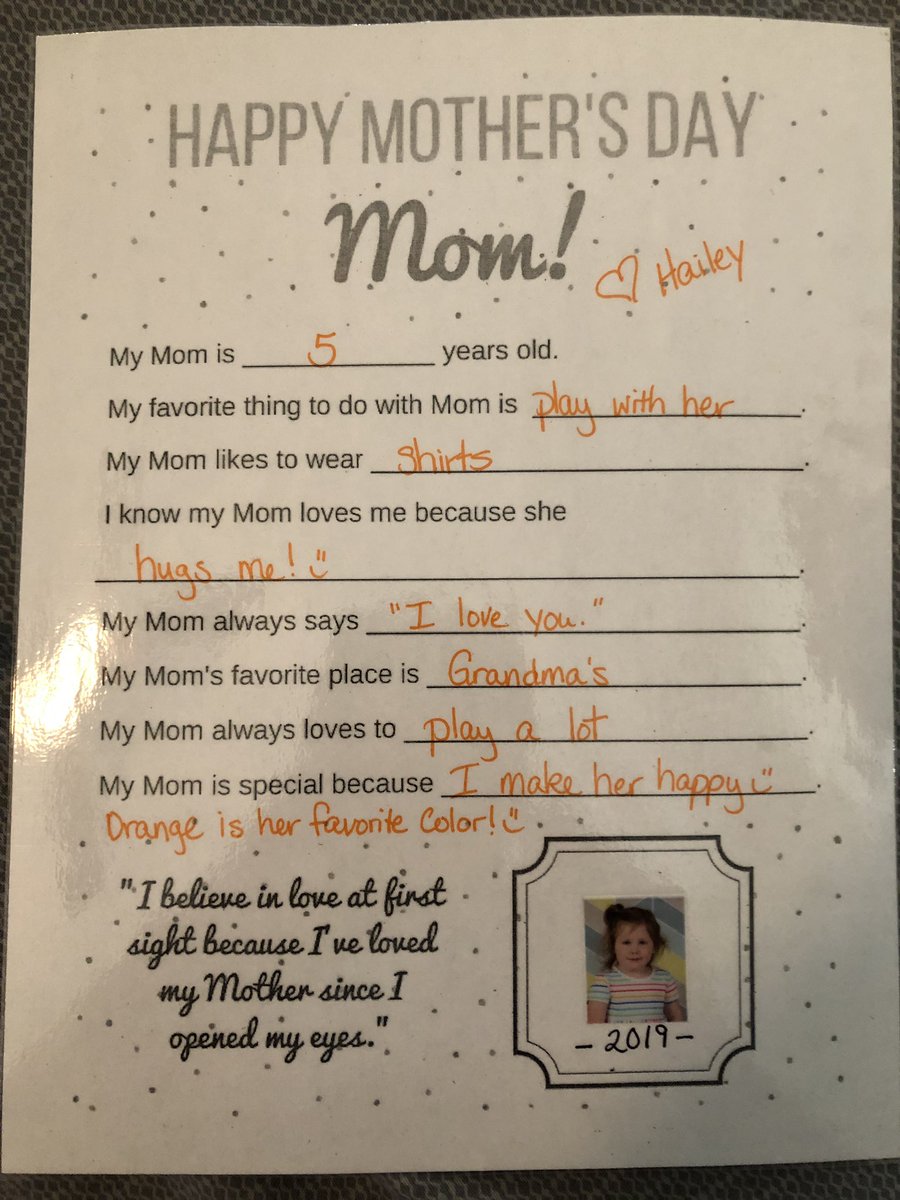 HAPPY MOTHER'S DAY
Mom!
♡ Hailey
My Mom is 5 years old.
My favorite thing to do with Mom is play with her.
My Mom likes to wear shirts.
I know my Mom loves me because she
hugs me! :).
My Mom always says "I love you.".
My Mom's favorite place is Grandma's.
My Mom always loves to play a lot.
My Mom is special because I make her happy :).
Orange is her favorite color! :)
"I believe in love at first
sight because I've loved
my Mother since I
opened my eyes."
- 2019 -